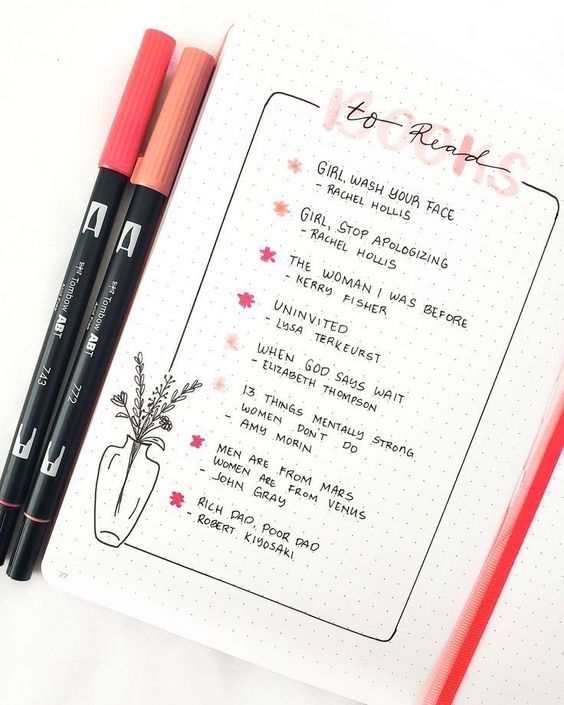 BOOKS
to Read
GIRL, WASH YOUR FACE
- RACHEL HOLLIS
GIRL, STOP APOLOGIZING
- RACHEL HOLLIS
THE WOMAN I WAS BEFORE
- KERRY FISHER
UNINVITED
- LYSA TERKEURST
WHEN GOD SAYS WAIT
- ELIZABETH THOMPSON
13 THINGS MENTALLY STRONG
WOMEN DON'T DO
- AMY MORIN
MEN ARE FROM MARS
WOMEN ARE FROM VENUS
- JOHN GRAY
RICH DAD, POOR DAD
- ROBERT KIYOSAKI
27
A
Tombow ABT
743
A
Tombow ABT
772